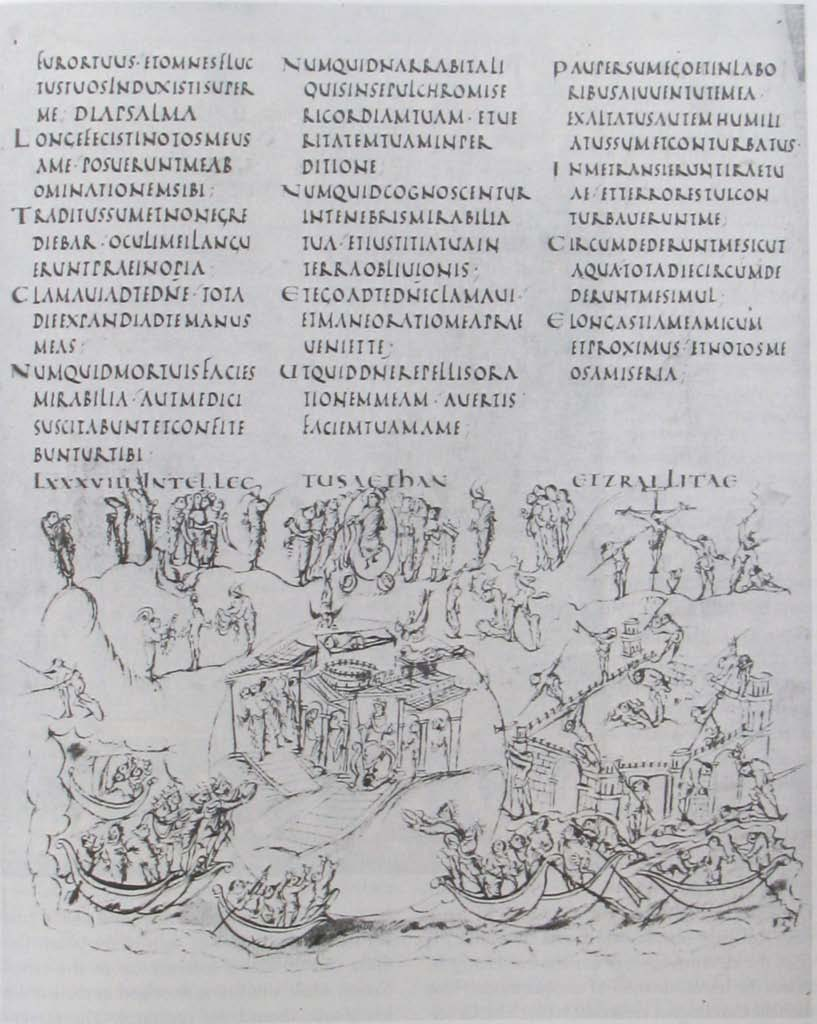 FURORTUUS·ETOMNESFLUC
TUSTUOSINDUXISTISUPER
ME· DIAPSALMA
LONGEFECISTINOTOSMEUS
AME·POSUERUNTMEAB
OMINATIONEMSIBI;
TRADITUSSUMETNONEGRE
DIEBAR·OCULIMEILANGU
ERUNTPRAEINOPIA·
CLAMAUIADTEDNE·TOTA
DIEEXPANDIADTEMANUS
MEAS;
NUMQUIDMORTUISFACIES
MIRABILIA·AUTMEDICI
SUSCITABUNTETCONFITE
BUNTURTIBI·
NUMQUIDNARRABITALI
QUISINSEPULCHROMISE
RICORDIAMTUAM·ETUE
RITATEMTUAMINPER
DITIONE
NUMQUIDCOGNOSCENTUR
INTENEBRISMIRABILIA
TUA·ETIUSTITIATUAIN
TERRAOBLIUIONIS·
ETEGOADTEDNECLAMAUI·
ETMANEORATIOMEAPRAE
UENIETTE;
UTQUIDDNEREPELLISORA
TIONEMMEAM·AUERTIS
FACIEMTUAMAME;
PAUPERSUMEGOETINLABO
RIBUSAIUUENTUTEMEA·
EXALTATUSAUTEMHUMILI
ATUSSUMETCONTURBATUS·
INMETRANSIERUNTIRAETU
AE·ETTERRORESTUICON
TURBAUERUNTME;
CIRCUMDEDERUNTMESICUT
AQUATOTADIECIRCUMDE
DERUNTMESIMUL;
ELONGASTIAMEAMICUM
ETPROXIMUS·ETNOTOSME
OSAMISERIA;
LXXXVIII INTELLEC TUSAETHAN EIZRALLITAE